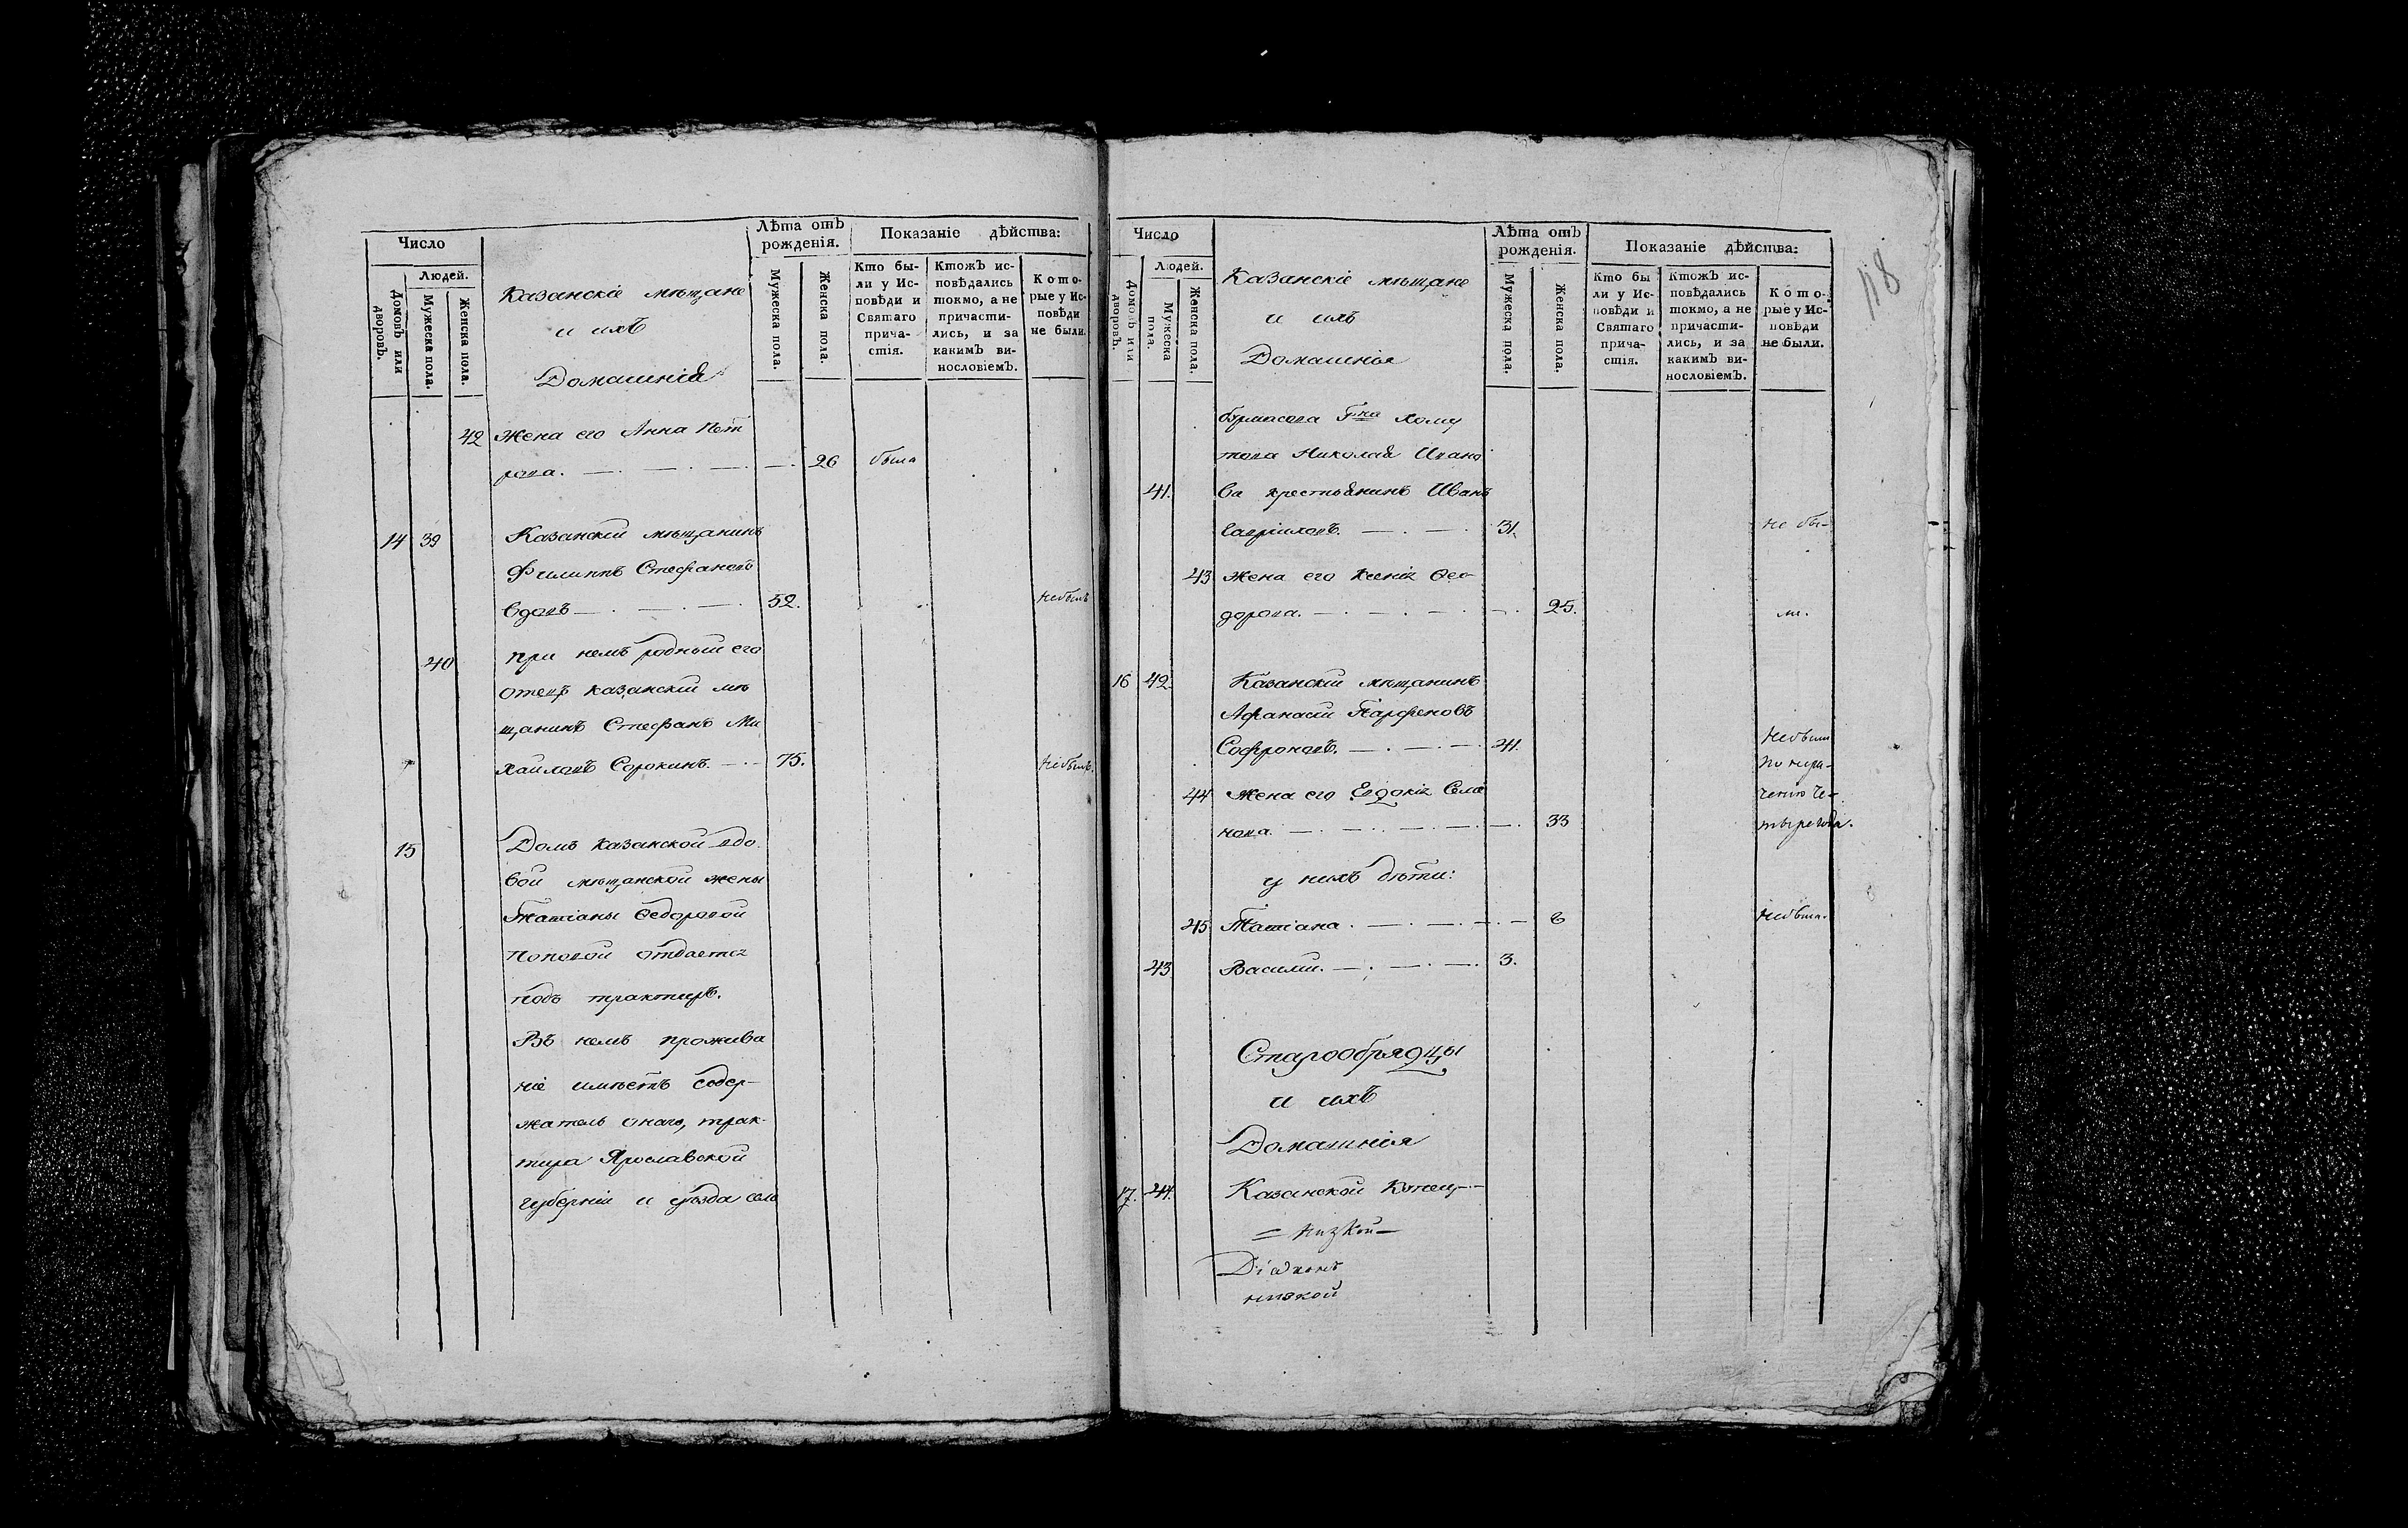 Число
Людей.
Домовъ или дворовъ.
Мужеска пола.
Женска пола.
Казанскіе мѣщане
и ихъ
Домашнія
Лѣта отъ
рожденія.
Мужеска пола.
Женска пола.
Показаніе дѣйства:
Кто бы-
ли у Ис-
повѣди и
Святаго
прича-
стія.
Ктожъ ис-
повѣдались
токмо, а не
причасти-
лись, и за
какимъ ви-
нословіемъ.
Кото-
рые у Ис-
повѣди
не были.
42 Жена его Анна Пет
рова. 26 была
14 39 Казанскій мѣщанинъ
Филиппъ Стефановъ
вдовъ 52. небылъ
40 При немъ родный его
отецъ казанскій мѣ
щанинъ Стефанъ Ми
хайловъ Сорокинъ. 75. небылъ.
15 Домъ казанской вдо
вой мѣщанской жены
Татіаны Ѳедоровой
Поповой отдается
подъ трактиръ.
Въ немъ прожива
ніе имѣетъ содер-
жатель онаго, трак-
тира Ярославской
губерніи и уѣзда села
118
Число
Людей.
Домовъ или дворовъ.
Мужеска пола.
Женска пола.
Казанскіе мѣщане
и ихъ
Домашнія
Лѣта отъ
рожденія.
Мужеска пола.
Женска пола.
Показаніе дѣйства:
Кто бы
ли у Ис-
повѣди и
Святаго
прича-
стія.
Ктожъ ис-
повѣдались
токмо, а не
причасти-
лись, и за
какимъ ви-
нословіемъ.
Кото-
рые у Ис-
повѣди
не были.
бурмасова Гна Хому
това Николая Ивано
41. ва крестьянинъ Иванъ
Гавриловъ. 31. не бы-
43 Жена его Ксенія Ѳео
дорова. 25. ли.
16 42. Казанскій мѣщанинъ
Афанасій Парфеновъ
Софроновъ. 41. небыли
по нера-
44 Жена его Евдокія Семе
нова. 33
у нихъ дѣти:
45 Татіана. 6 небыла.
43 Василій. 3.
Старообрядцы
и ихъ
Домашнія
17. 44. Казанской
Низкой
низкой